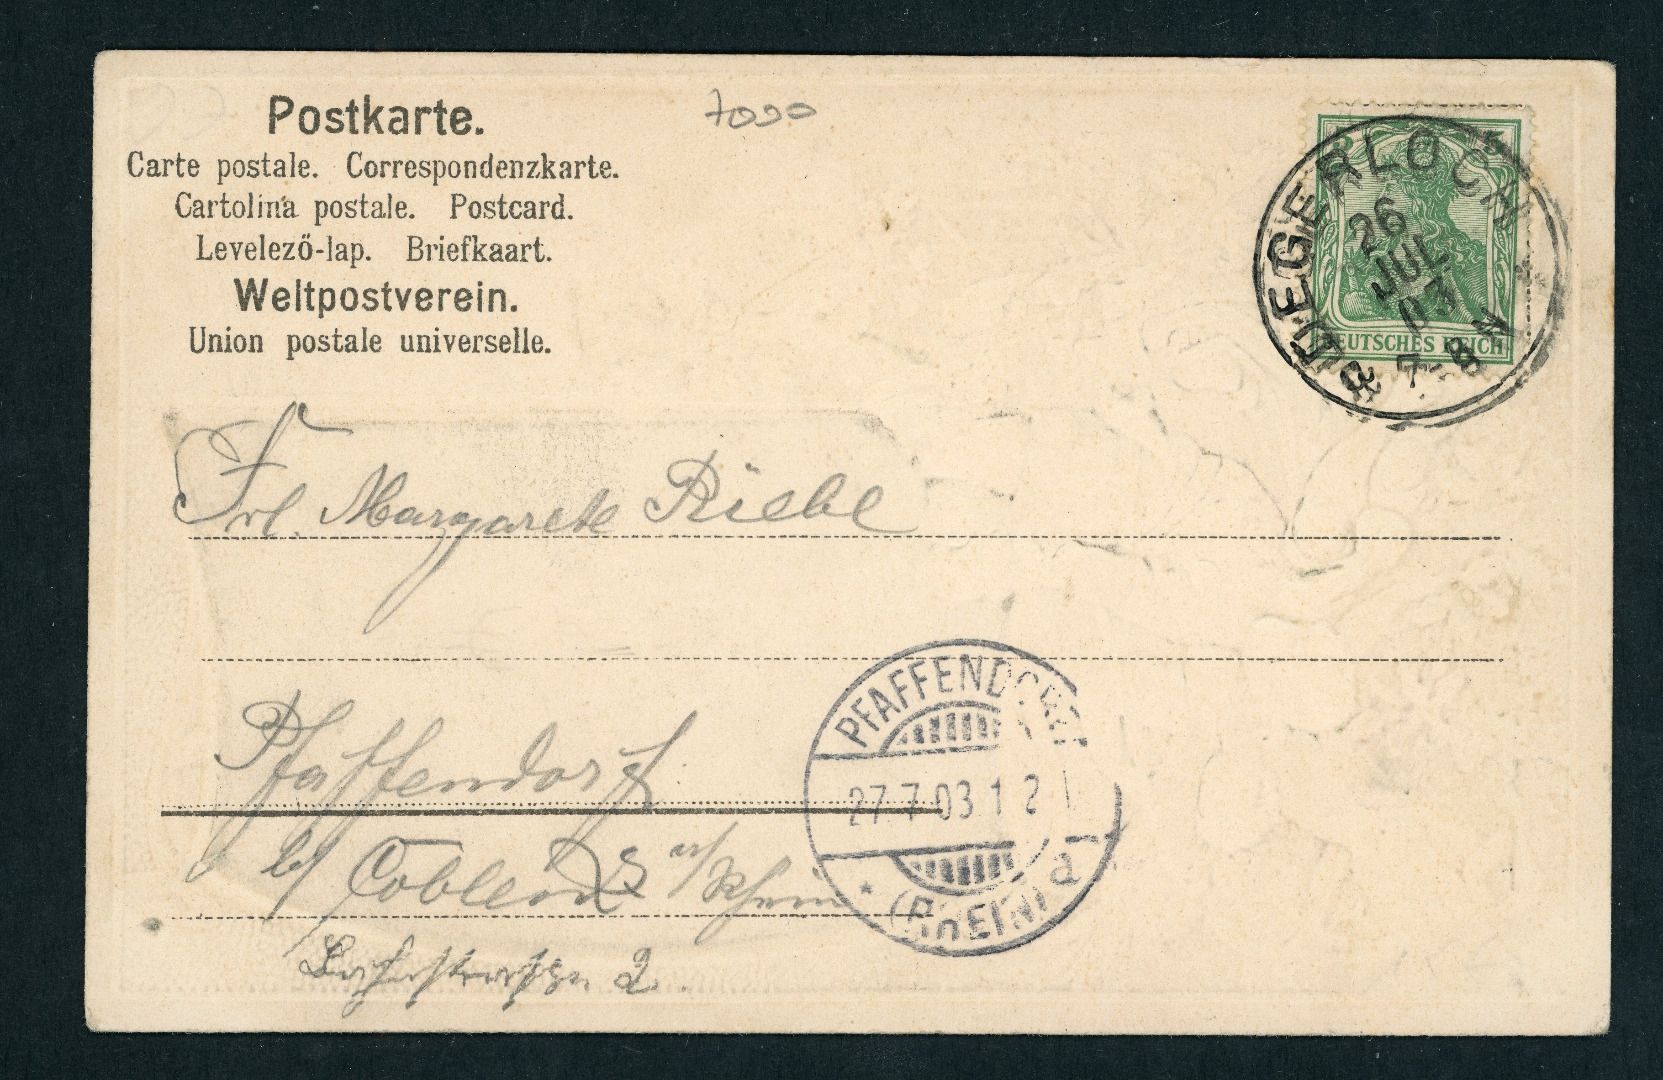 Postkarte.
7090
Carte postale. Correspondenzkarte.
Cartolina postale. Postcard.
Levelező-lap. Briefkaart.
Weltpostverein.
Union postale universelle.
DEGERLOCH
26
JUL
03
7-8 N
DEUTSCHES REICH
Frl. Margarete Riebl
Pfaffendorf
b/ Coblenz a/Rhein
2.
PFAFFENDORF
27.7.03.1 2
* (RHEIN) a